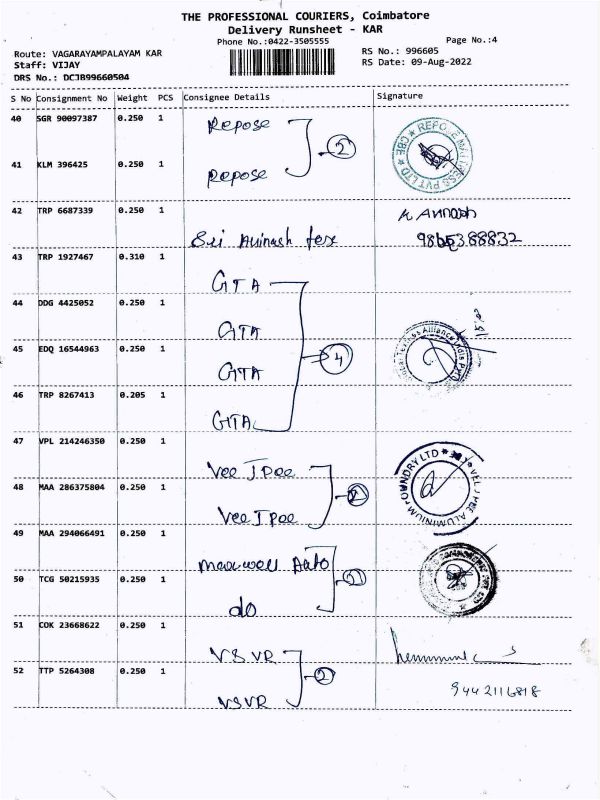 THE PROFESSIONAL COURIERS, Coimbatore
Delivery Runsheet - KAR
Phone No.:0422-3505555
Page No.:4
Route: VAGARAYAMPALAYAM KAR
RS No.: 996605
Staff: VIJAY
RS Date: 09-Aug-2022
DRS No.: DCJB99660504
S No Consignment No Weight PCS Consignee Details Signature
40 SGR 90097387 0.250 1 Repose
2
REPOSE MATTRESS PVT LTD * CBE *
41 KLM 396425 0.250 1 Repose
42 TRP 6687339 0.250 1 Sri Avinash Tex
K Avinash
43 TRP 1927467 0.310 1 GTA
44 DDG 4425052 0.250 1 GTA
4
45 EDQ 16544963 0.250 1 GTA
46 TRP 8267413 0.205 1 GTA
47 VPL 214246350 0.250 1 Vee J Pee
VEE J PEE ALUMINIUM FOUNDRY LTD
48 MAA 286375804 0.250 1 Vee J Pee
2
49 MAA 294066491 0.250 1 Maxwell Auto
50 TCG 50215935 0.250 1 do
51 COK 23668622 0.250 1 VSVR
2
52 TTP 5264308 0.250 1 VSVR
9442116818